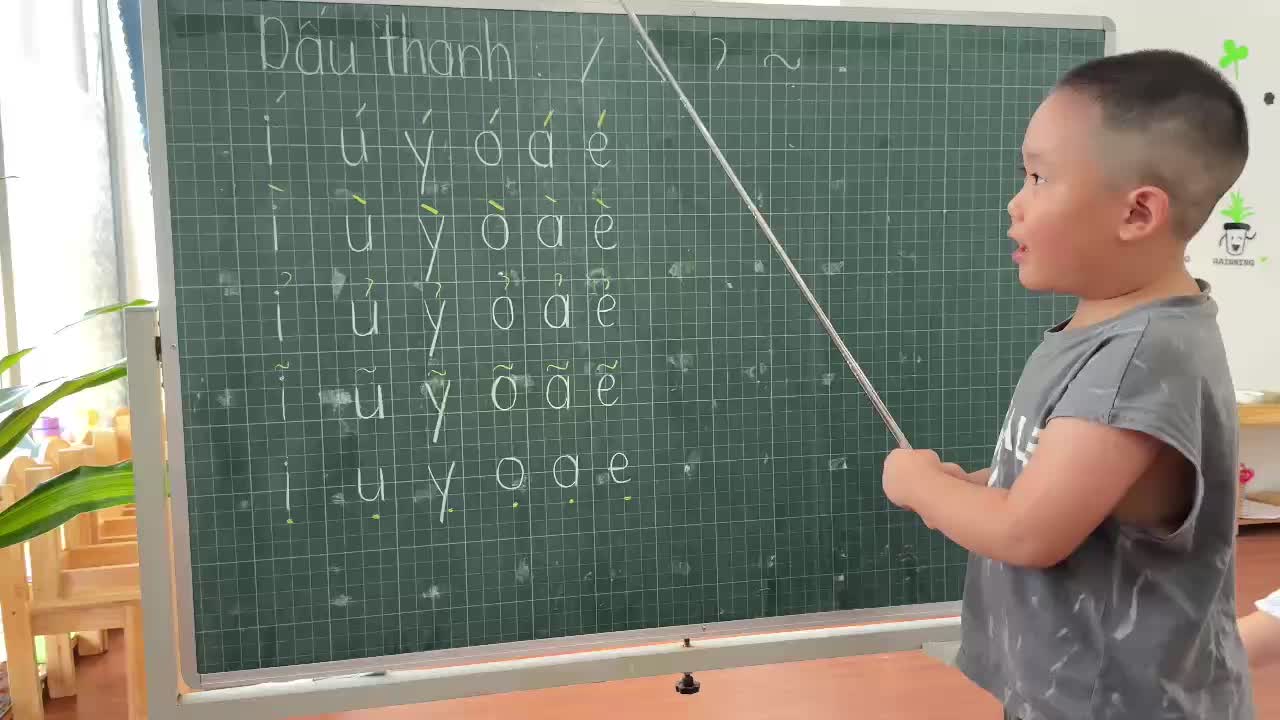 Dấu thanh. / \ ˀ ~ .
í ú ý ó á é
ì ù ỳ ò à è
ỉ ủ ỷ ỏ ả ẻ
ĩ ũ ỹ õ ã ẽ
ị ụ ỵ ọ ạ ẹ